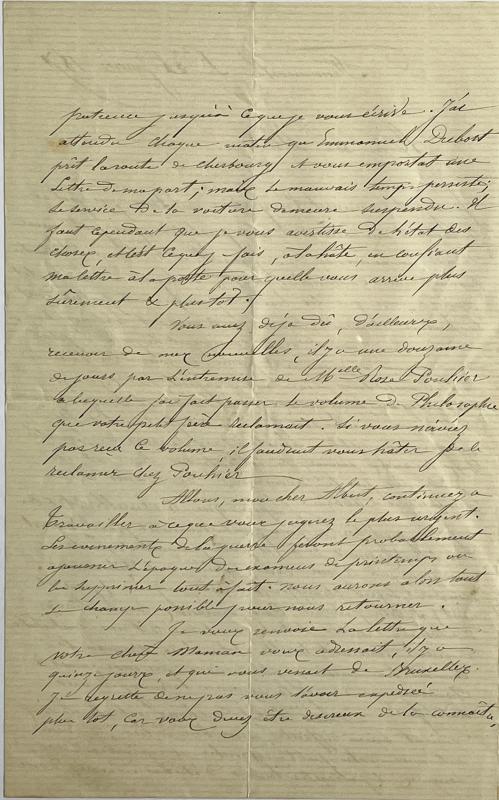 patience jusqu'à ce que je vous écrive. J'ai
attendu chaque matin qu'Emmanuel Dubost
prît la route de Cherbourg et vous emportat une
lettre de ma part; mais le mauvais temps persiste;
le service de la voiture demeure suspendu. Il
faut cependant que je vous avertisse de l'état des
choses, et c'est ce que je fais, à la hâte, en confiant
ma lettre à la poste pour qu'elle vous arrive plus
sûrement & plus tôt.
Vous avez déjà dû, d'ailleurs,
recevoir de mes nouvelles, il y a une douzaine
de jours par l'entremise de Melle Rose Pouhier
à laquelle j'ai fait passer le volume de Philosophie
que votre petit réclamait. Si vous n'aviez
pas reçu ce volume, il faudrait vous hâter de le
réclamer chez Pouhier
Allons, mon cher Albert, continuez à
travailler à ce que vous jugerez le plus urgent.
Les évènements de la guerre feront probablement
ajourner l'époque des examens de printemps ou
les supprimer tout à fait. nous aurons alors tout
le champ possible pour nous retourner.
Je vous renvoie la lettre que
votre chère Maman vous adressait, il y a
quinze jours, et qui vous venait de Bruxelles.
Je regrette de ne pas vous l'avoir expédiée
plus tôt, car vous devez être désireux de la connaître,